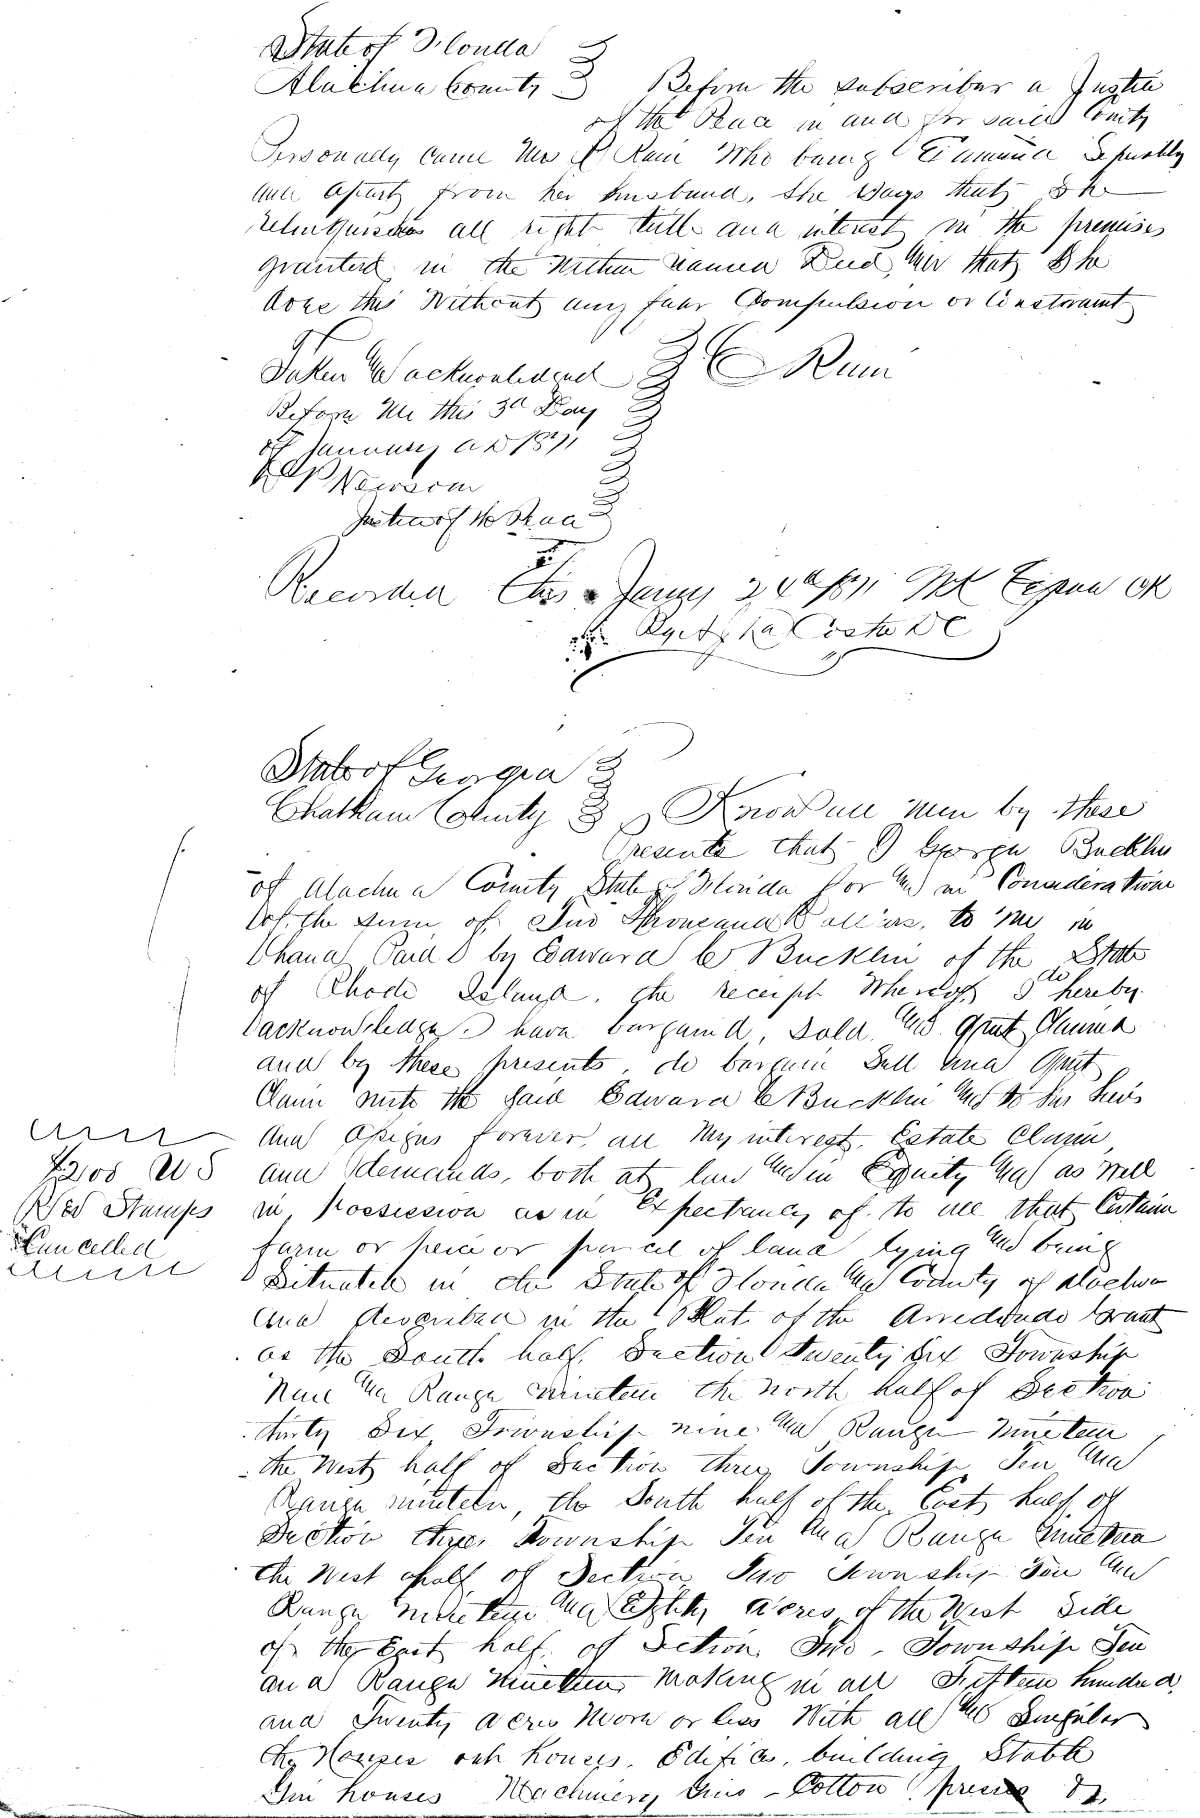 State of Florida
Alachua County Before the subscriber a Justice
of the Peace in and for said County
Personally came Mrs C Rain Who being Examined Seperately
and apart from her husband, She Says that She
relinquishes all right title and interest in the premises
granted in the Within named Deed, and that She
does this Without any fear Compulsion or Constraint
Taken and acknowledged C Rain
Before Me this 3d Day
of January AD 1871
Newsom
Justice of the Peace
Recorded this Jany 24th 1871
La Costa DC
State of Georgia
Chatham County Know all men by these
Presents that I George Bucklin
of Alachua County State of Florida for and in Consideration
of the sum of Two Thousand Dollars, to me in
hand Paid by Edward C Bucklin of the State
of Rhode Island, the receipt Whereof I do hereby
acknowledge have bargained, Sold, and Quit Claimed
and by these presents, do bargain Sell and Quit
Claim unto the Said Edward C Bucklin and to his heirs
and assigns forever, all My interest, Estate Claim
and demands, both at law and in Equity and as Well
in, Possession as in Expectancy of, to all that Certain
farm or peice or parcel of land lying and being
Situated in the State of Florida and County of Alachua
and described in the Plat of the Arredondo Grant
as the South half, Section Twenty Six Township
Nine and Range nineteen the north half of Section
thirty Six, Township nine and Range nineteen
the West half of Section three Township Ten and
Range nineteen, the South half of the East half of
Section three, Township Ten and Range nineteen
the West half of Section Two Township Ten and
Range nineteen and Eighty acres of the West Side
of the East half of Section Two, Township Ten
and Range Nineteen making in all Fifteen hundred
and Twenty acres More or less With all and Singular
the Houses out houses, Edifices, building Stable
Gin houses Machinery Gins - Cotton presses &c,
$2.00 U S
Rev Stamps
Cancelled